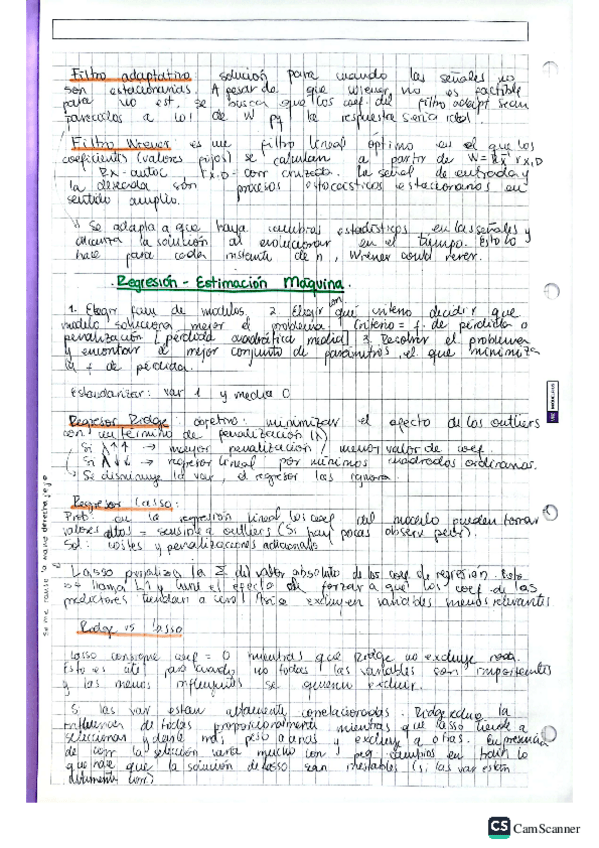 Filtro adaptativo: solución para cuando las señales no
son estacionarias. A pesar de que Wiener no es factible
para no est, se buscan que los coef. del filtro adapt sean
parecidos a los de W pq la respuesta sería ideal.
Filtro Wiener es un filtro lineal óptimo en el que los
coeficientes (valores fijos) se calculan a partir de W = Rx⁻¹ rx,D
Rx - autoc rx,D - corr cruzada. La señal de entrada y
la deseada son procesos estocásticos estacionarios en
sentido amplio.
Se adapta a que haya cambios estadísticos en las señales y
alcanza la solución al evolucionar en el tiempo. Esto lo
hace para cada instante de n, Wiener could never.
Regresión - Estimación Máquina.
1. Elegir fam de modelos. 2. Elegir con qué criterio decidir que
modelo soluciona mejor el problema. Criterio = f. de pérdida o
penalización [pérdida cuadrática media] 3. Resolver el problema
y encontrar el mejor conjunto de parámetros, el que minimiza
la f de pérdida.
Estandarizar: var 1 y media 0
Regresor Ridge: objetivo: minimizar el efecto de los outliers
con un término de penalización (λ)
Si λ↑↑ → mayor penalización / menor valor de coef.
Si λ↓↓ → regresor lineal por mínimos cuadrados ordinarios.
Se disminuye la var, el regresor las ignora.
se me cansó la mano derecha, jejo
Regresor Lasso:
Prob: en la regresión lineal los coef del modelo pueden tomar
valores altos = sensible a outliers (Si hay pocas observ peor).
Sol: costes y penalizaciones adicionales
Lasso penaliza la Σ del valor absoluto de los coef de regresión. Esto
se llama L1 y tiene el efecto de forzar a que los coef de las
predictores tiendan a cero! Así se excluyen variables menos relevantes
Ridge vs Lasso
Lasso consigue coef = 0 mientras que Ridge no excluye nada.
Esto es útil para cuando no todas las variables son importantes
y las menos influyentes se quieren excluir.
Si las var están altamente correlacionadas. Ridge reduce la
influencia de todas proporcionalmente mientras que lasso tiende a
seleccionar y darle más peso a unas y excluye a otras. En presencia
de corr la selección varía mucho con peq cambios en train lo
que hace que la solución de lasso sean inestables (si las var están
altamente corr)
CS CamScanner